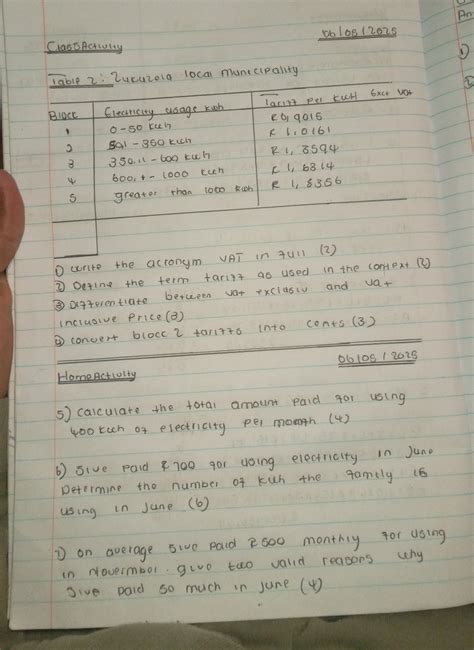 06/05/2025
Class Activity
Table 2: Zucuzela local municipality
Block Electricity usage kwh Tariff per kwh Excl vat
1 0-50 kwh R 0,9015
2 50,1 - 350 kwh R 1,0161
3 350,1 - 600 kwh R 1,3594
4 600,1 - 1000 kwh R 1,6314
5 greater than 1000 kwh R 1,8356
1) write the acronym VAT in full (2)
2) Define the term tariff as used in the context (2)
3) Differentiate between vat exclusiv and vat
inclusive price (3)
4) convert blocc 2 tariffs into cents (3)
06/05/2025
Home Activity
5) Calculate the total amount paid for using
400 kwh of electricity per month (4)
6) Sive paid R700 for using electricity in June
Determine the number of kwh the family is
using in June (6)
7) on average Sive paid R500 monthly for using
in November. give two valid reasons why
Sive paid so much in June (4)